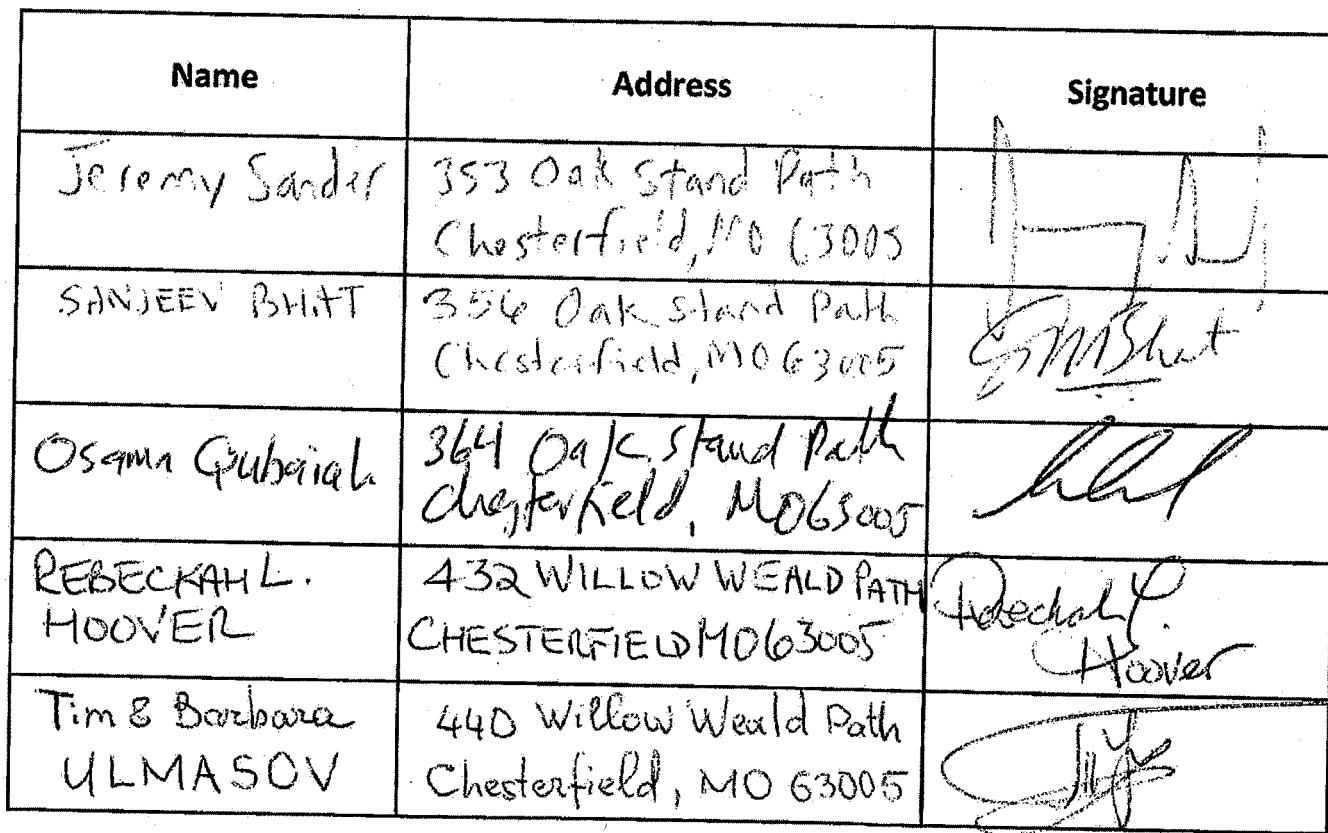 Name Address Signature
Jeremy Sander 353 Oak Stand Path
Chesterfield, MO 63005
SANJEEV BHATT 356 Oak Stand Path
Chesterfield, MO 63005
Bhat
Osama 364 Oak Stand Path
Chesterfield, MO 63005
REBECKAH L. 432 WILLOW WEALD PATH Rebeckah L.
HOOVER CHESTERFIELD MO 63005 Hoover
Tim & Barbara 440 Willow Weald Path
ULMASOV Chesterfield, MO 63005